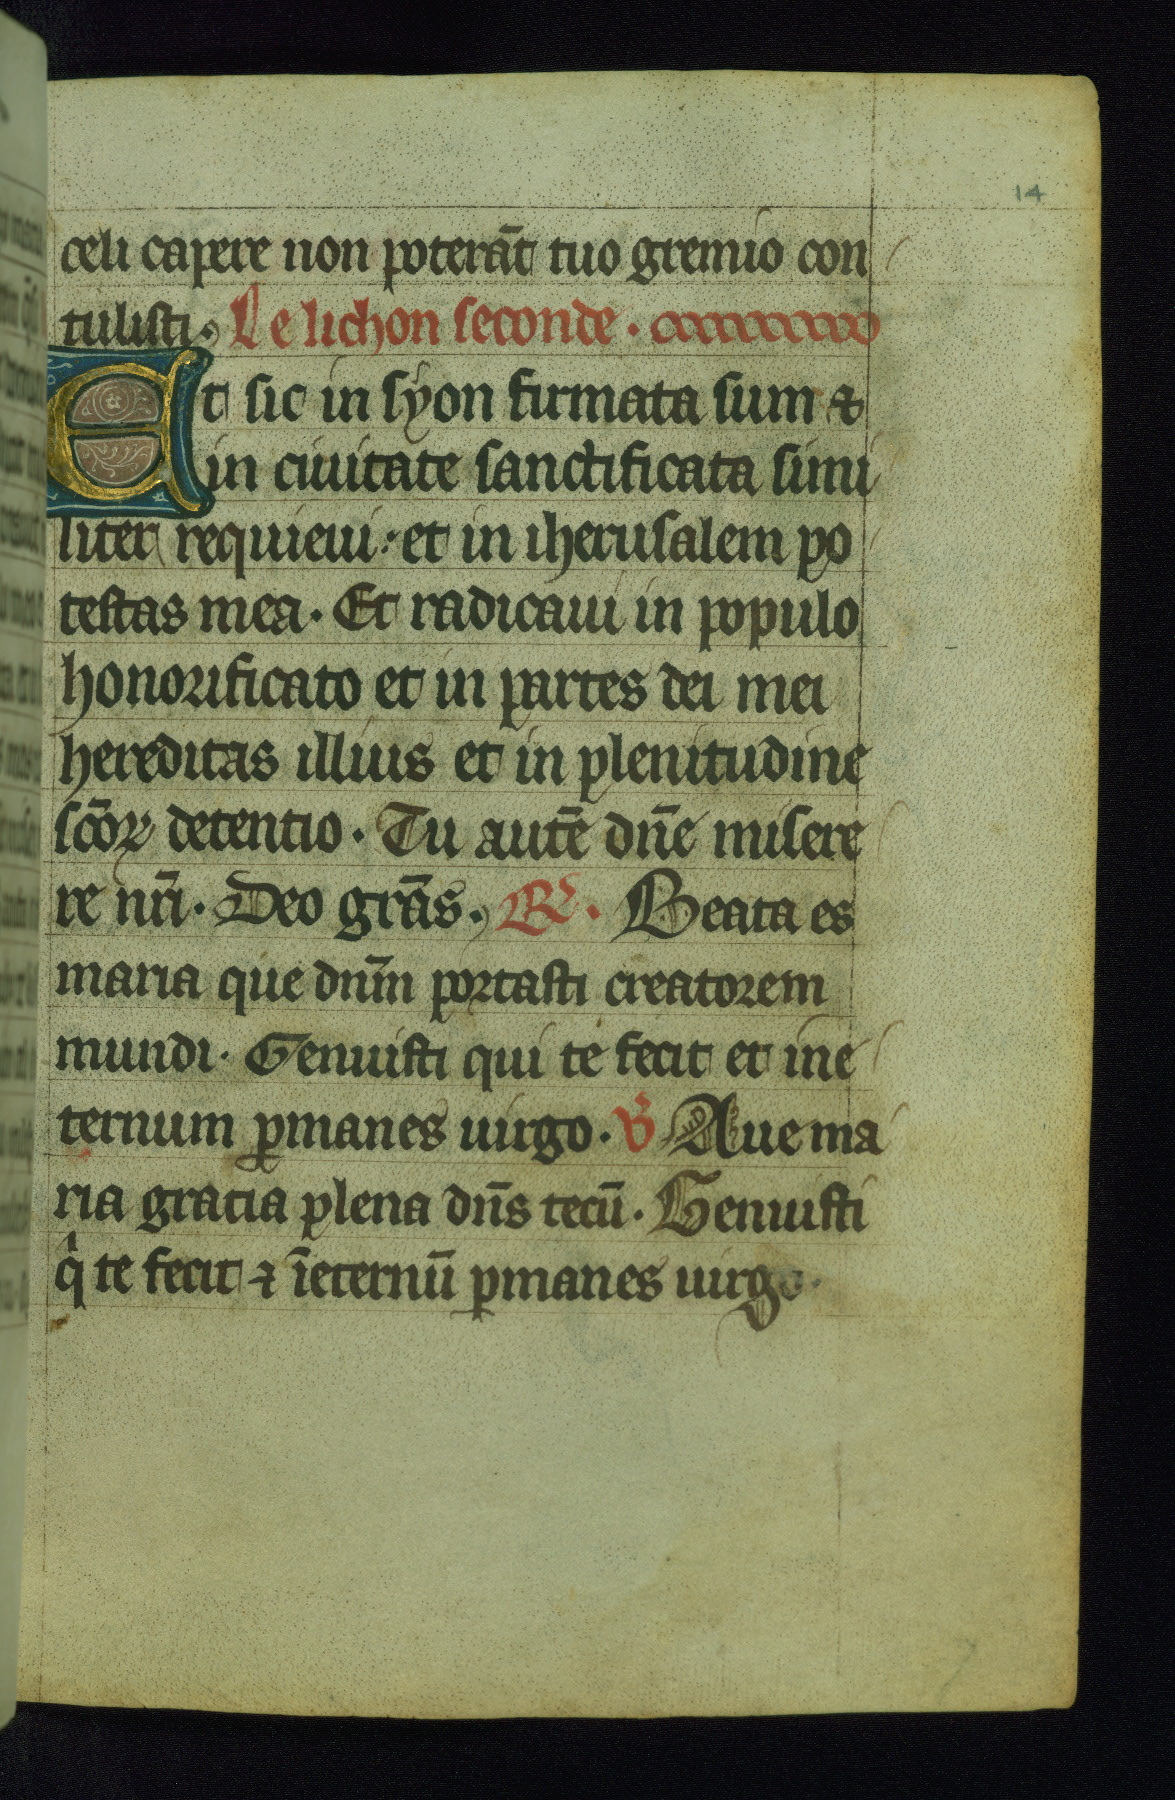 14
celi capere non poterāt tuo gremio con
tulisti. Le lichon seconde.
Et sic in syon firmata sum &
in ciuitate sanctificata simi
liter requieui: et in iherusalem po
testas mea. Et radicaui in populo
honorificato et in partes dei mei
hereditas illius et in plenitudine
scōꝝ detentio. Tu autē dn̄e misere
re nr̄i. Deo grās. ℟. Beata es
maria que dnm̄ portasti creatorem
mundi. Genuisti qui te fecit et ine
ternum ꝑmanes uirgo. ℣ Aue ma
ria gracia plena dn̄s tecū. Genuisti
qⁱ te fecit ⁊ īeternū ꝑmanes uirgo.